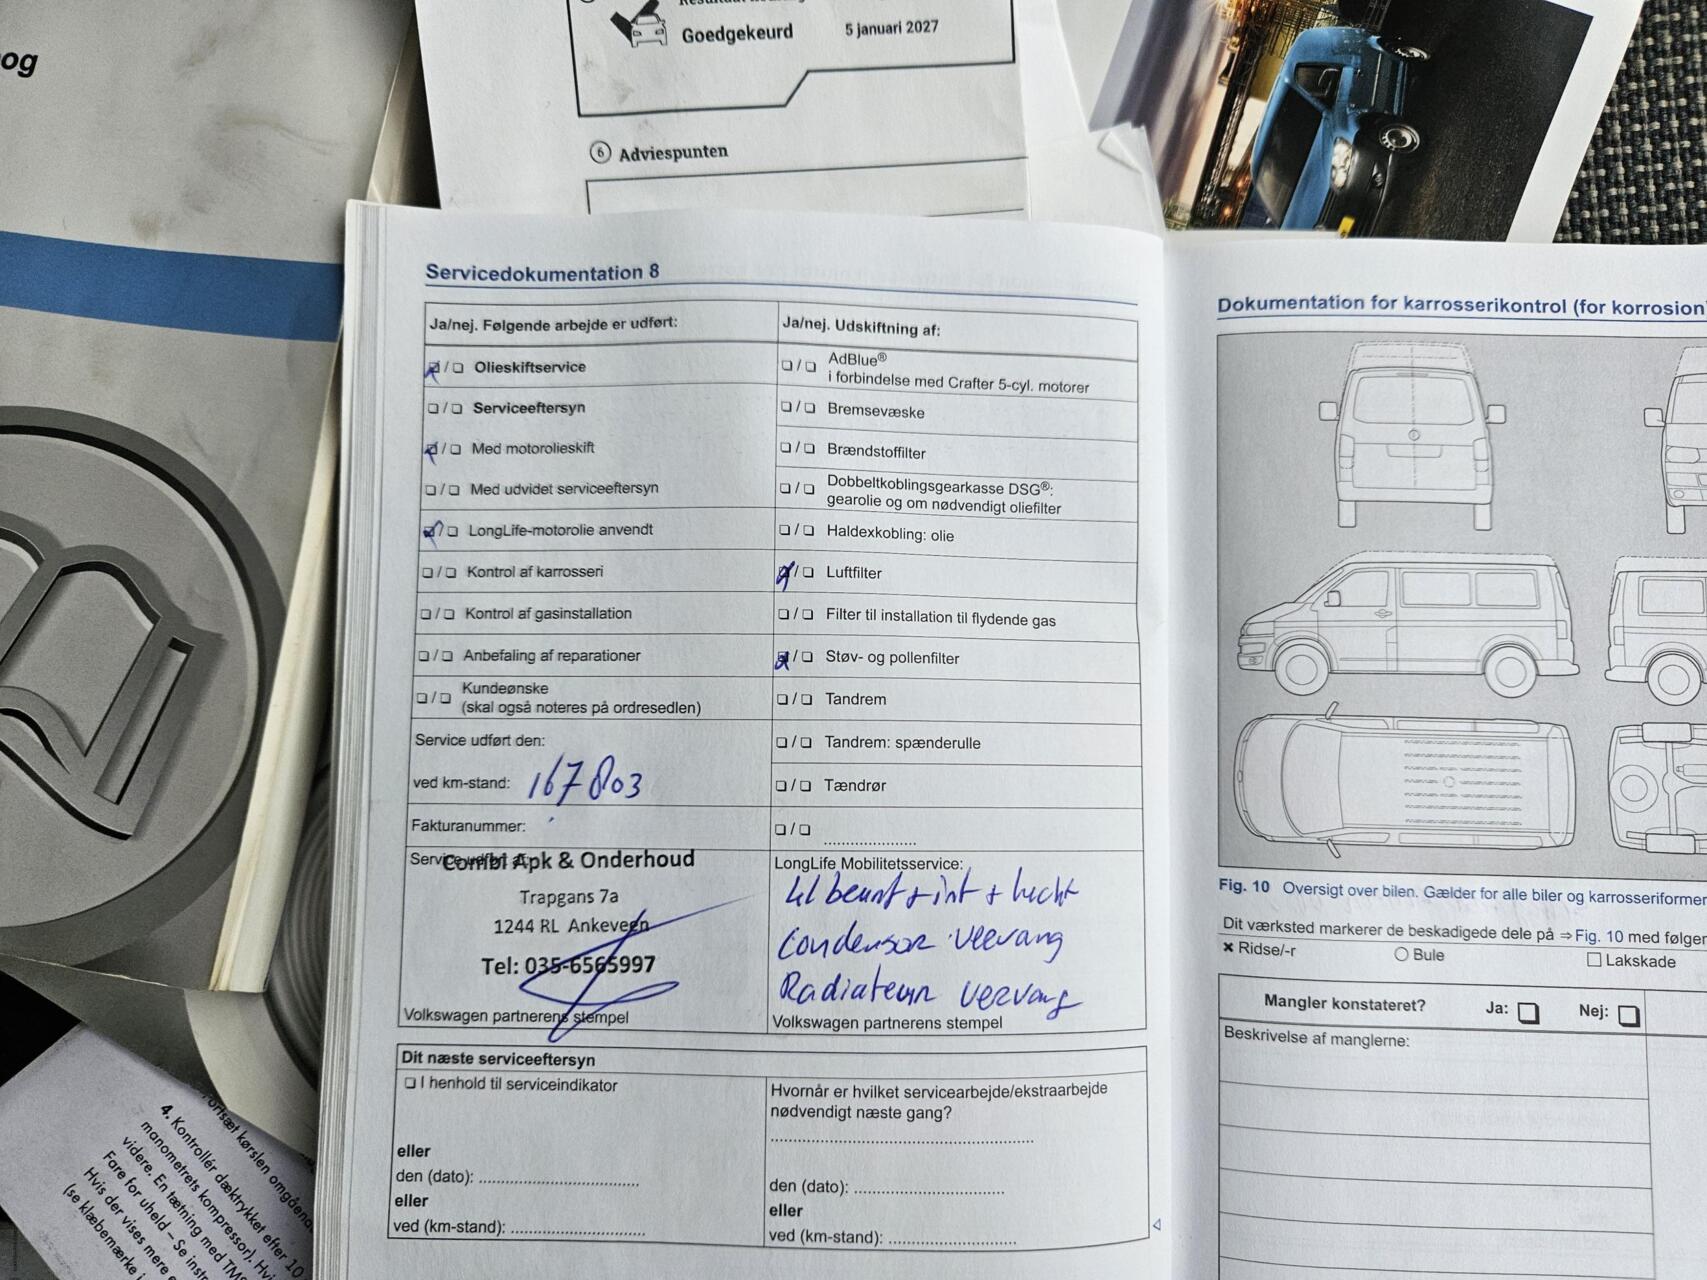 og
Goedgekeurd 5 januari 2027
6 Adviespunten
Servicedokumentation 8
Ja/nej. Følgende arbejde er udført:
Olieskiftservice
Serviceeftersyn
Med motorolieskift
Med udvidet serviceeftersyn
LongLife-motorolie anvendt
Kontrol af karrosseri
Kontrol af gasinstallation
Anbefaling af reparationer
Kundeønske
(skal også noteres på ordresedlen)
Service udført den:
ved km-stand: 167803
Fakturanummer:
Service udført af:
Combi Apk & Onderhoud
Trapgans 7a
1244 RL Ankeveen
Tel: 035-6565997
Volkswagen partnerens stempel
Ja/nej. Udskiftning af:
AdBlue®
i forbindelse med Crafter 5-cyl. motorer
Bremsevæske
Brændstoffilter
Dobbeltkoblingsgearkasse DSG®:
gearolie og om nødvendigt oliefilter
Haldexkobling: olie
Luftfilter
Filter til installation til flydende gas
Støv- og pollenfilter
Tandrem
Tandrem: spænderulle
Tændrør
LongLife Mobilitetsservice:
+ int + lucht
Condensor
Radiateur vervang
Volkswagen partnerens stempel
Dit næste serviceeftersyn
I henhold til serviceindikator
eller
den (dato):
eller
ved (km-stand):
Hvornår er hvilket servicearbejde/ekstraarbejde
nødvendigt næste gang?
den (dato):
eller
ved (km-stand):
Dokumentation for karrosserikontrol (for korrosion)
Fig. 10 Oversigt over bilen. Gælder for alle biler og karrosseriformer
Dit værksted markerer de beskadigede dele på ⇒ Fig. 10 med følger
× Ridse/-r Bule Lakskade
Mangler konstateret? Ja: Nej:
Beskrivelse af manglerne:
Fortsæt kørslen omgående
4. Kontrollér dæktrykket efter 10
manometrets kompressor). Hvi
videre. En tætning med TMS
Fare for uheld – Se instr
Hvis der vises mere
(se klæbemærke i